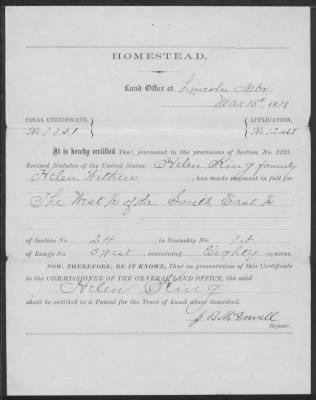 HOMESTEAD.
Land Office at Lincoln Nebr
Mar 15th, 1878
FINAL CERTIFICATE,
No. 7731
APPLICATION,
No. 12468
It is hereby certified That, pursuant to the provisions of Section No. 2291,
Revised Statutes of the United States, Helen King formerly
Helen Withers has made payment in full for
The West ½ of the South East ¼
of Section No. 24, in Township No.
of Range No. 5 West, containing Eighty acres.
NOW, THEREFORE, BE IT KNOWN, That on presentation of this Certificate
to the COMMISSIONER OF THE GENERAL LAND OFFICE, the said
Helen King
shall be entitled to a Patent for the Tract of Land above described.
J B McDowell
Register.